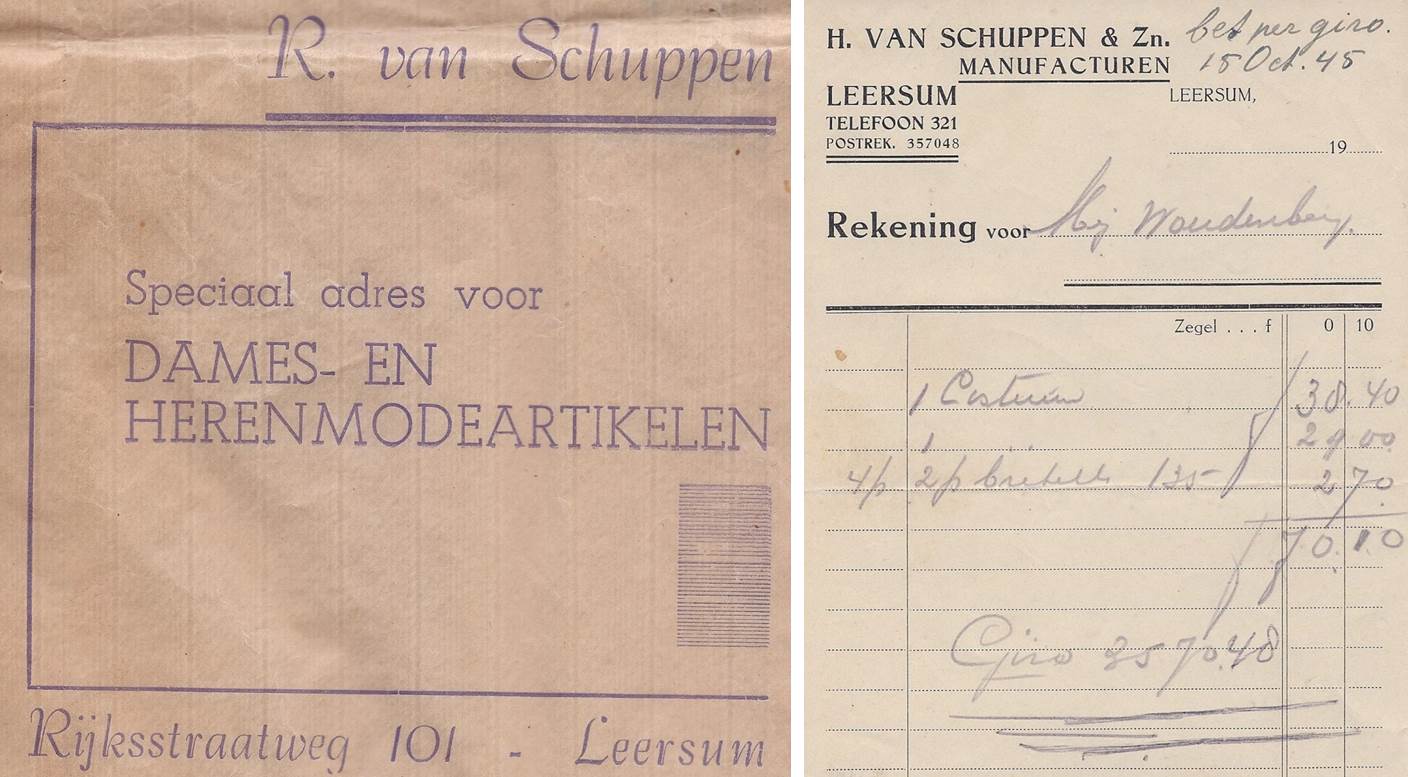 R. van Schuppen
Speciaal adres voor
DAMES- EN
HERENMODEARTIKELEN
Rijksstraatweg 101 - Leersum
H. VAN SCHUPPEN & Zn.
MANUFACTUREN
bet per giro.
15 Oct. 45
LEERSUM
TELEFOON 321
POSTREK. 357048
LEERSUM,
19
Rekening voor Mij Woudenberg.
Zegel . . . f 0 10
1 Costuum 38.40
1 " 29 00
2p bretels 135 2 70
70.10
Giro 357048